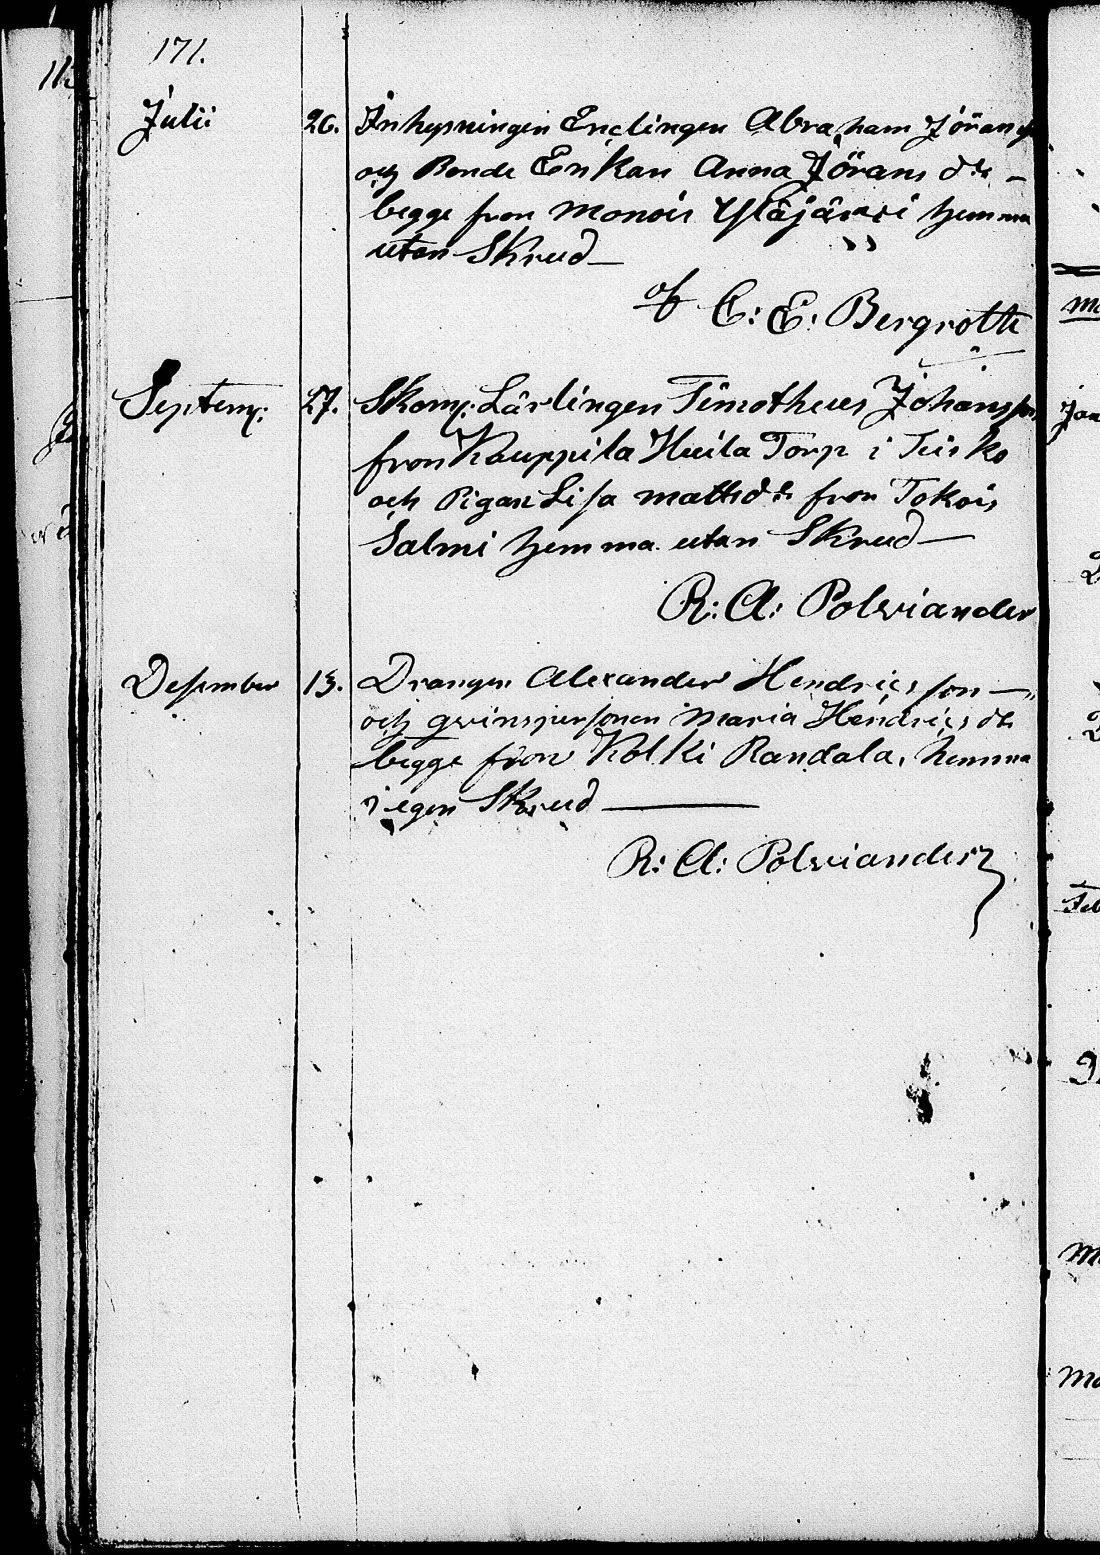 171.
Julii 26. Inhysningen Enclingen Abraham Jörans
och Bonde Enkan Anna Jörans dtr —
begge fron Monois Yläjärvi hemma
utan Skrud —
af C: E: Bergroth
Septemr: 27. Skom: Lärlingen Timotheus Johansson
fron Kauppila Huila Torp i Teisko
och Pigan Lisa Mattsdtr fron Tokois
Salmi hemma utan Skrud —
R: A: Polviander
Desember 13. Drangen Alexander Hendricsson —
och qvinspersonen Maria Hendricsdtr
begge från Kolki Randala, hemma
i egen Skrud —
R: A: Polviander